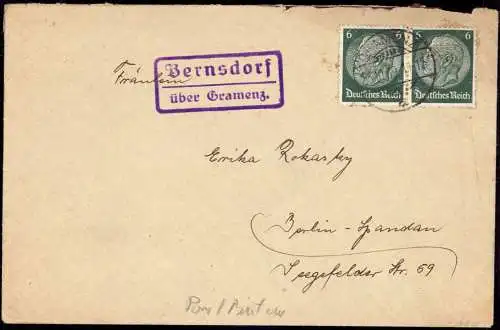 6 6 6
Deutsches Reich Deutsches Reich
Fräulein
Bernsdorf
über Gramenz.
Erika Rokasky
Berlin-Spandau
Seegefelder Str. 69